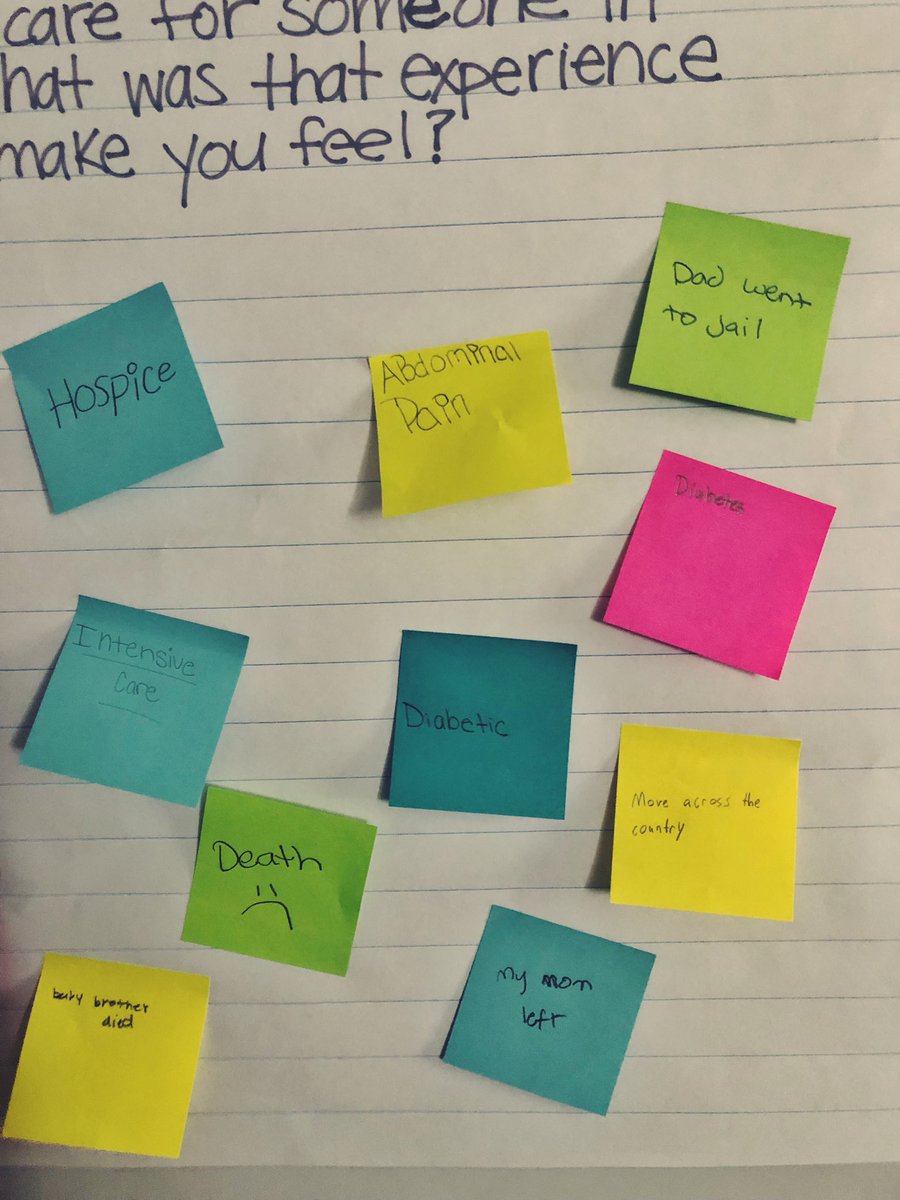 care for someone in
hat was that experience
make you feel?
Dad went
to Jail
Hospice
Abdominal
Pain
Diabetes
Intensive
Care
Diabetic
Move across the
country
Death
my mom
left
baby brother
died